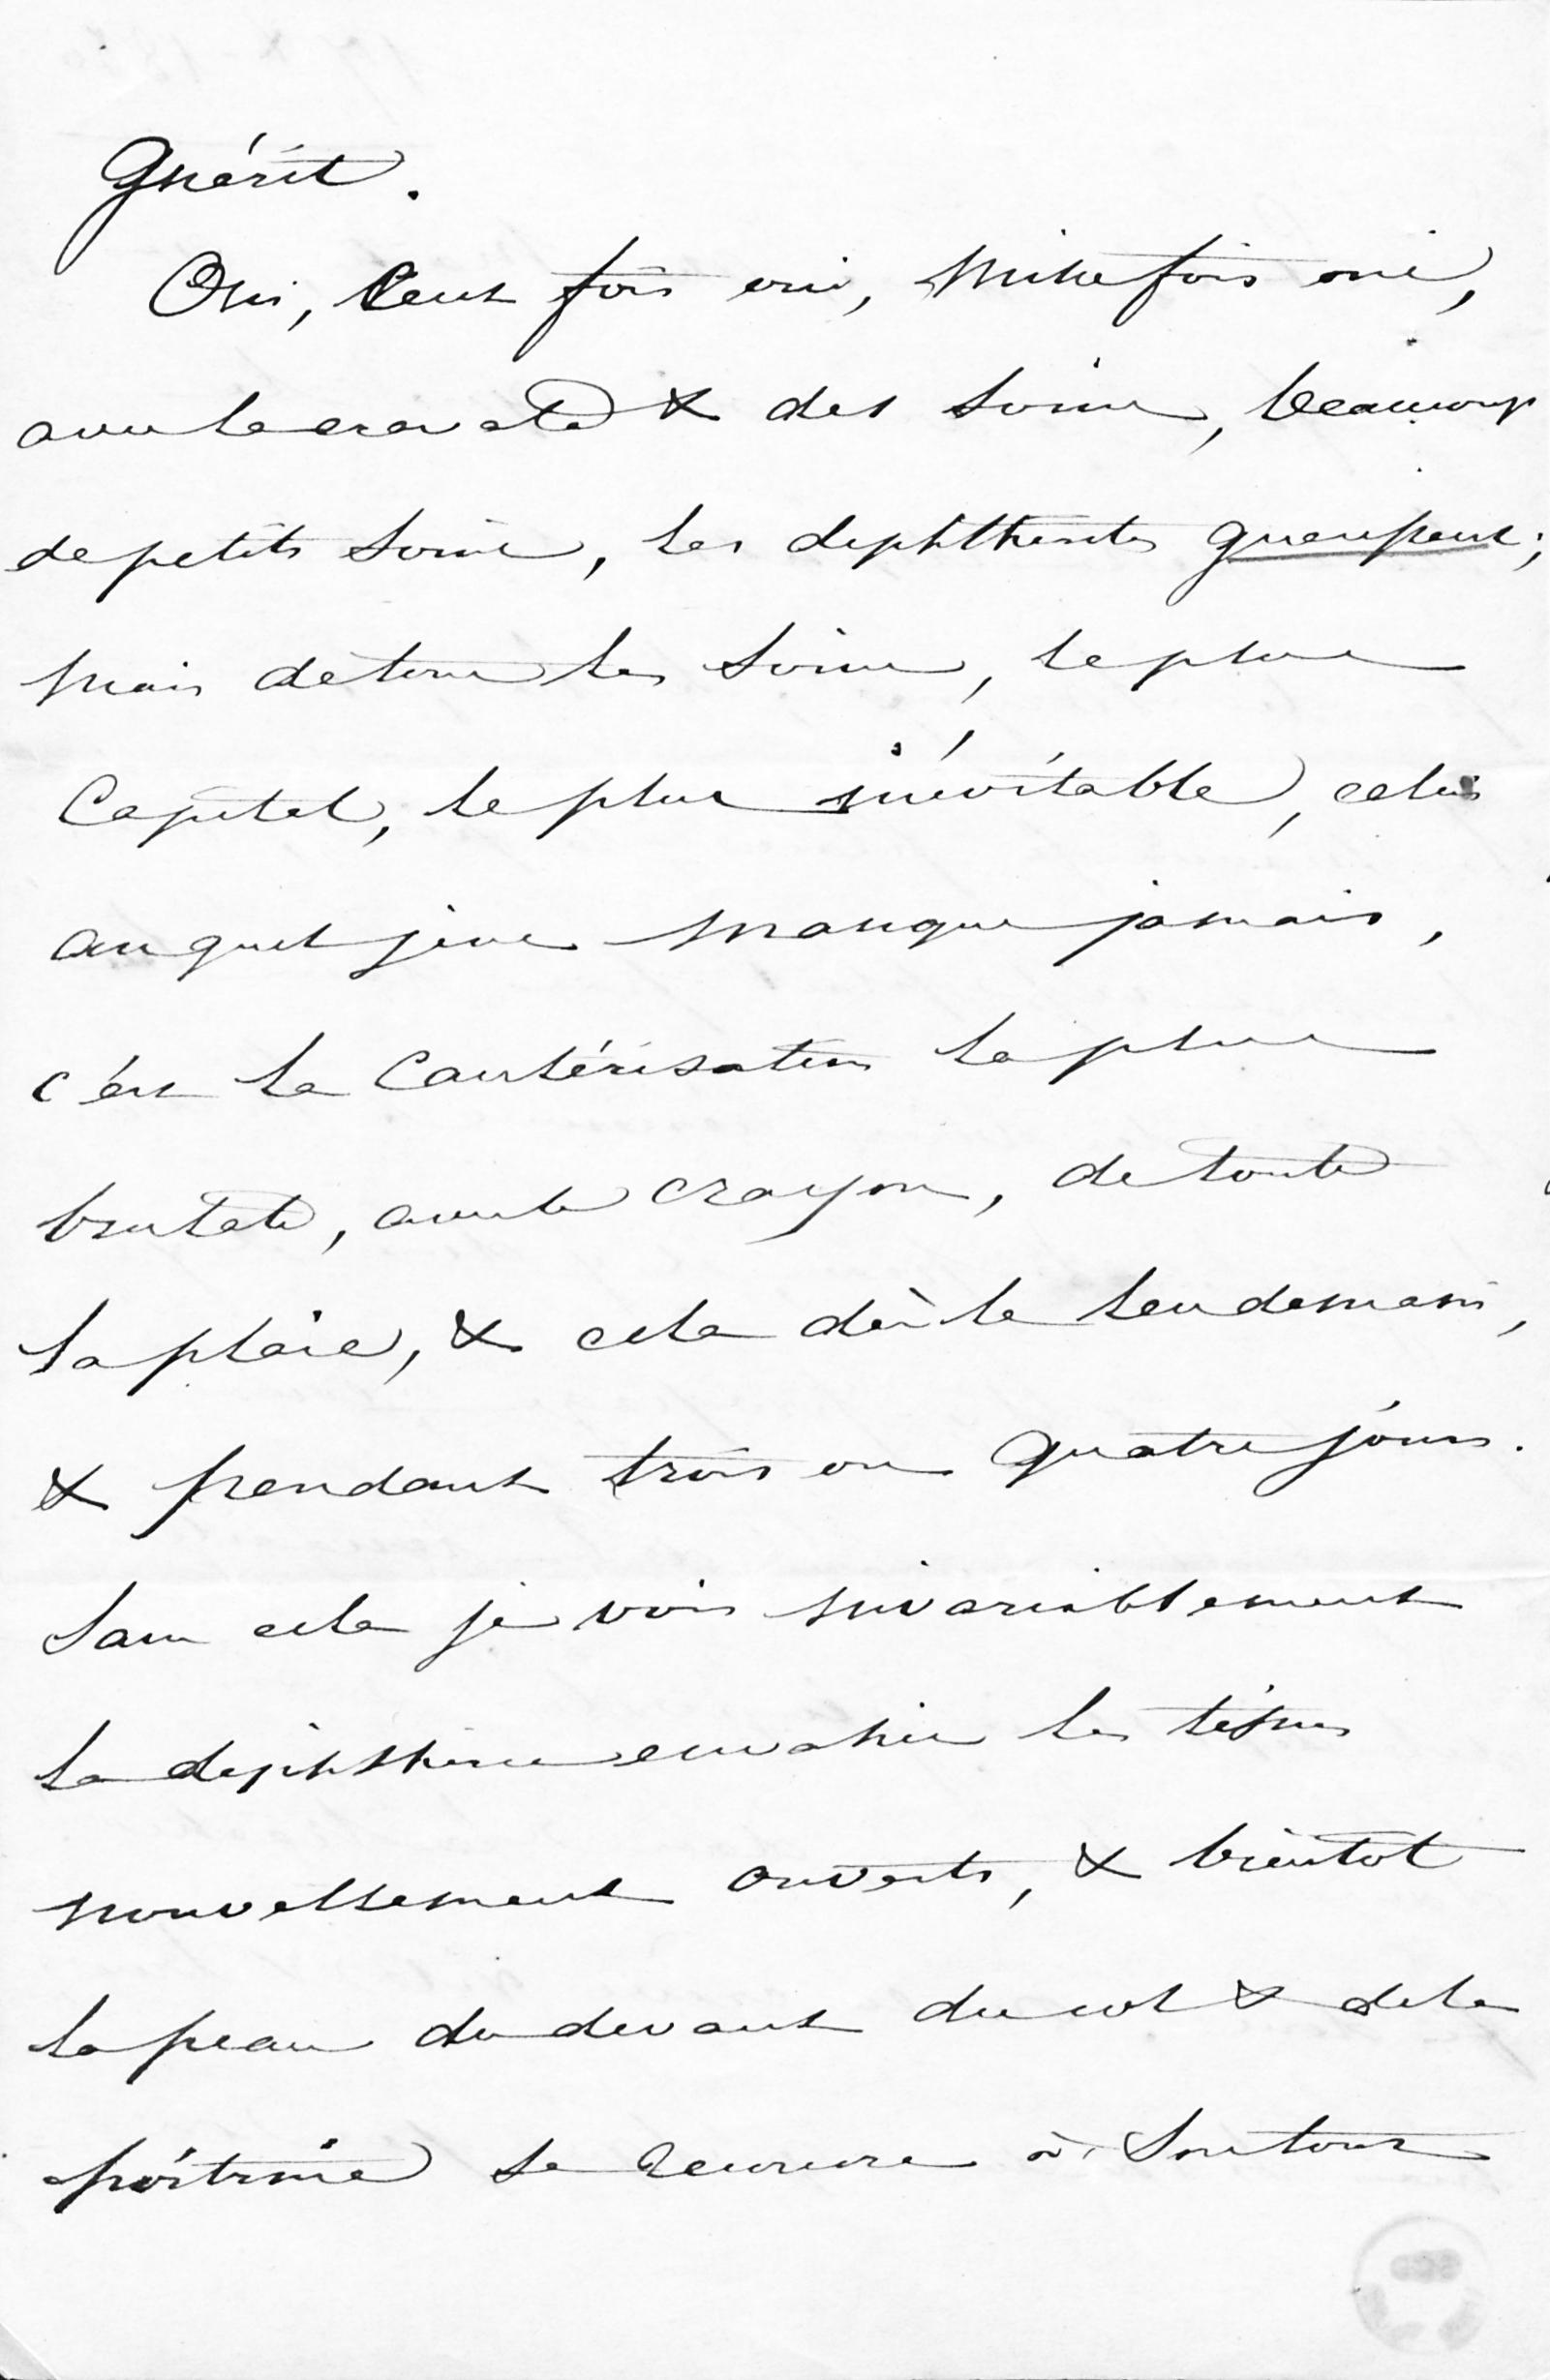 Guérit.
Oui, Cent fois oui, Mille fois oui,
avec la cravate & des soins, beaucoup
de petits soins, les diphthérites guérissent;
Mais de tous les soins, le plus
Capital, le plus inévitable, celui
auquel je ne manque jamais,
c'est la Cautérisation la plus
brutale, avec le crayon, de toute
la plaie, & cela dès le lendemain,
& pendant trois ou quatre jours.
Sans cela je vois invariablement
la diphthérie envahir les tissus
nouvellement ouverts, & bientôt
la peau du devant du col & de la
poitrine se recouvre à son tour